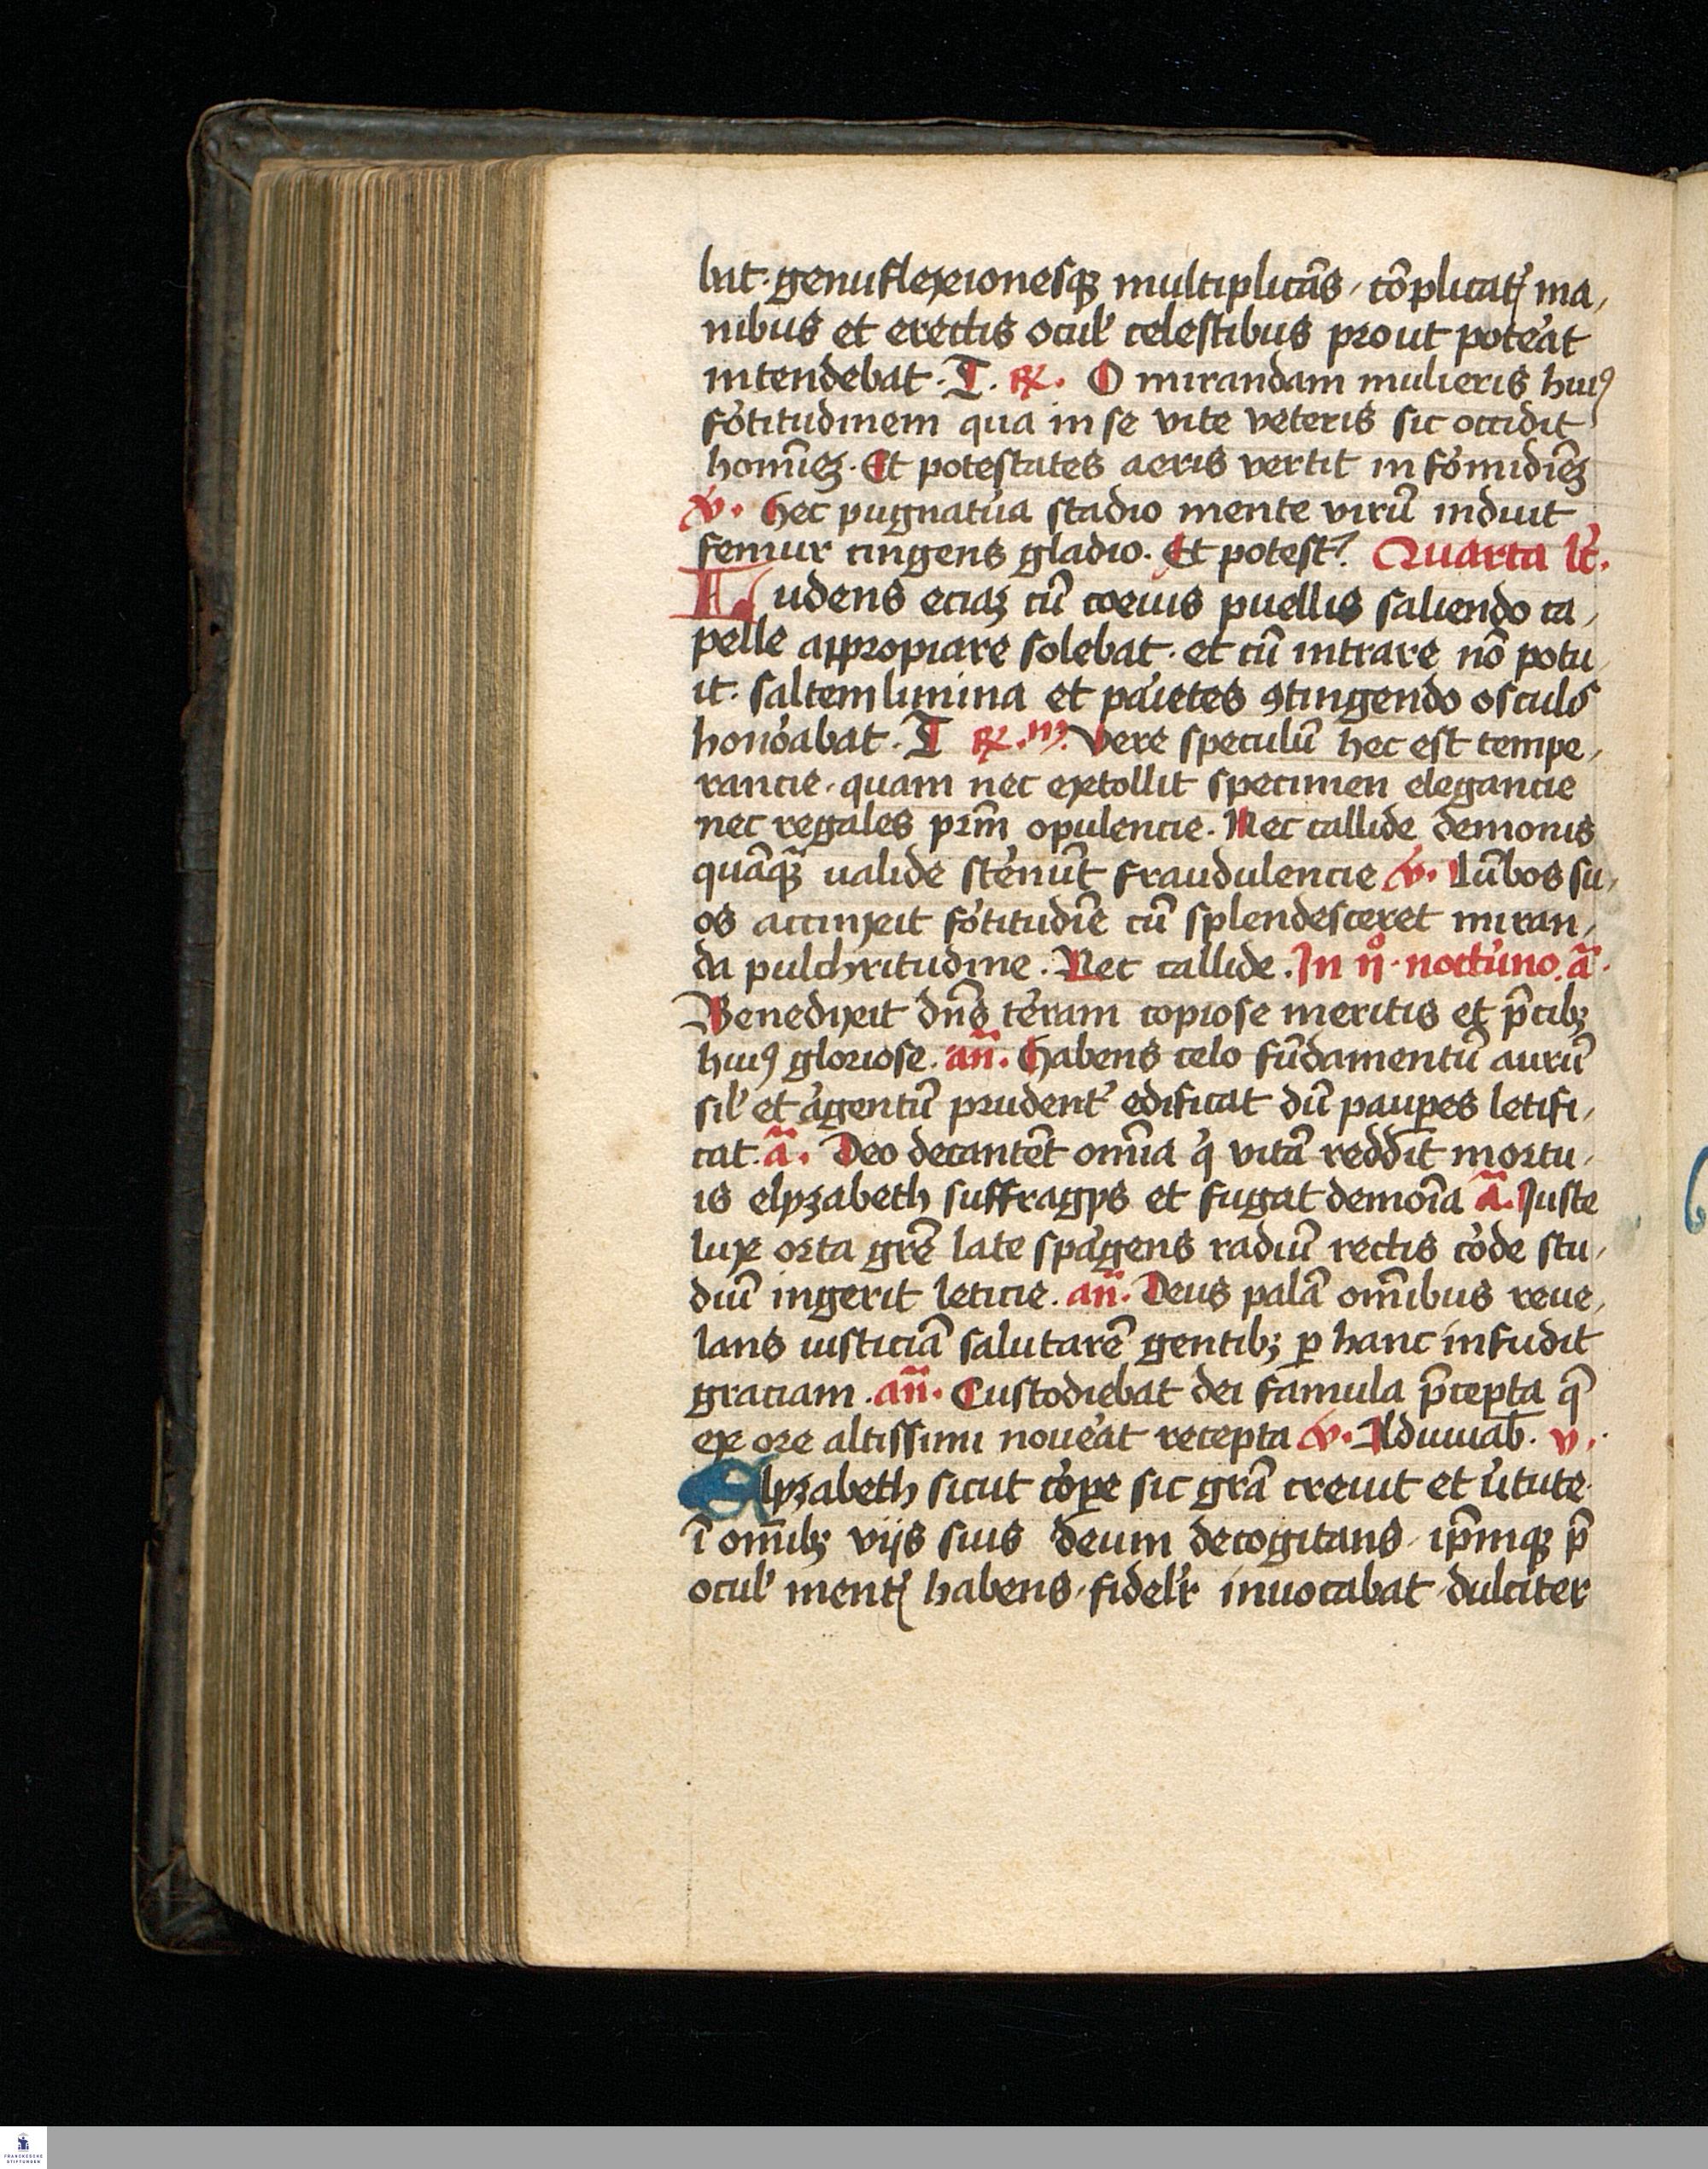 bat· genuflexionesqꝫ multiplicās, cōplicatꝭ ma,
nibus et erectis ocul' celestibus prout pote᷑at
intendebat. T. ℟. O mirandam mulieris huiꝰ
fo᷑titudinem qua in se vite veteris sic occidit
homīeꝫ. Et potestates aeris vertit in fo᷑midiēꝫ
℣. Hec pugnatu᷑a stadio mente virū induit
femur cingens gladio. Et potest? Quarta lc̄.
Ludens eciaꝫ cū coeuis puellis saliendo ca,
pelle appropiare solebat· et cū intrare nō potu,
it· saltem limina et pa᷑ietes ꝯtingendo osculs
hono᷑abat. T ℟. iij. Vere speculū hec est tempe,
rancie· quam nec extollit specimen elegancie
nec regales prīm opulencie. Nec callide demonis
quāqꝫ ualide ste᷑nūt fraudulencie ℣. Lūbos su,
os accinxit fo᷑titudīe cū splendesceret miran,
da pulchritudine. Nec callide. In ijº· noctu᷑no. ā.
Benedixit dn̄s te᷑ram copiose meritis et p̄cibꝫ
huiꝰ gloriose. an̄. Habens celo fūdamentū aurū
sil' et a᷑gentū prudent᷑ edificat dū paup̱es letifi,
cat. ā. Deo decantēt om̄ia q' vitā reddit mortu,
is elyzabeth suffragijs et fugat demōia ā. Juste
lux orta gr̄e late spa᷑gens radiū rectis co᷑de stu,
diū ingerit leticie. an̄. Deus palā om̄ibus reue,
lans iusticiā salutarē gentibꝫ ꝑ hanc infudit
graciam. an̄. Custodiebat dei famula p̄cepta q̄
ex ore altissimi noue᷑at recepta ℣. Adiuuab̄. v.
Elyzabeth sicut co᷑pe sic gr̄a creuit et u᷑tute
ī om̄ibꝫ vijs suis deum decogitans· ip̄mqꝫ p̄
ocul' mentꝭ habens, fidel'r inuocabat dulciter
FRANCKESCHE
STIFTUNGEN